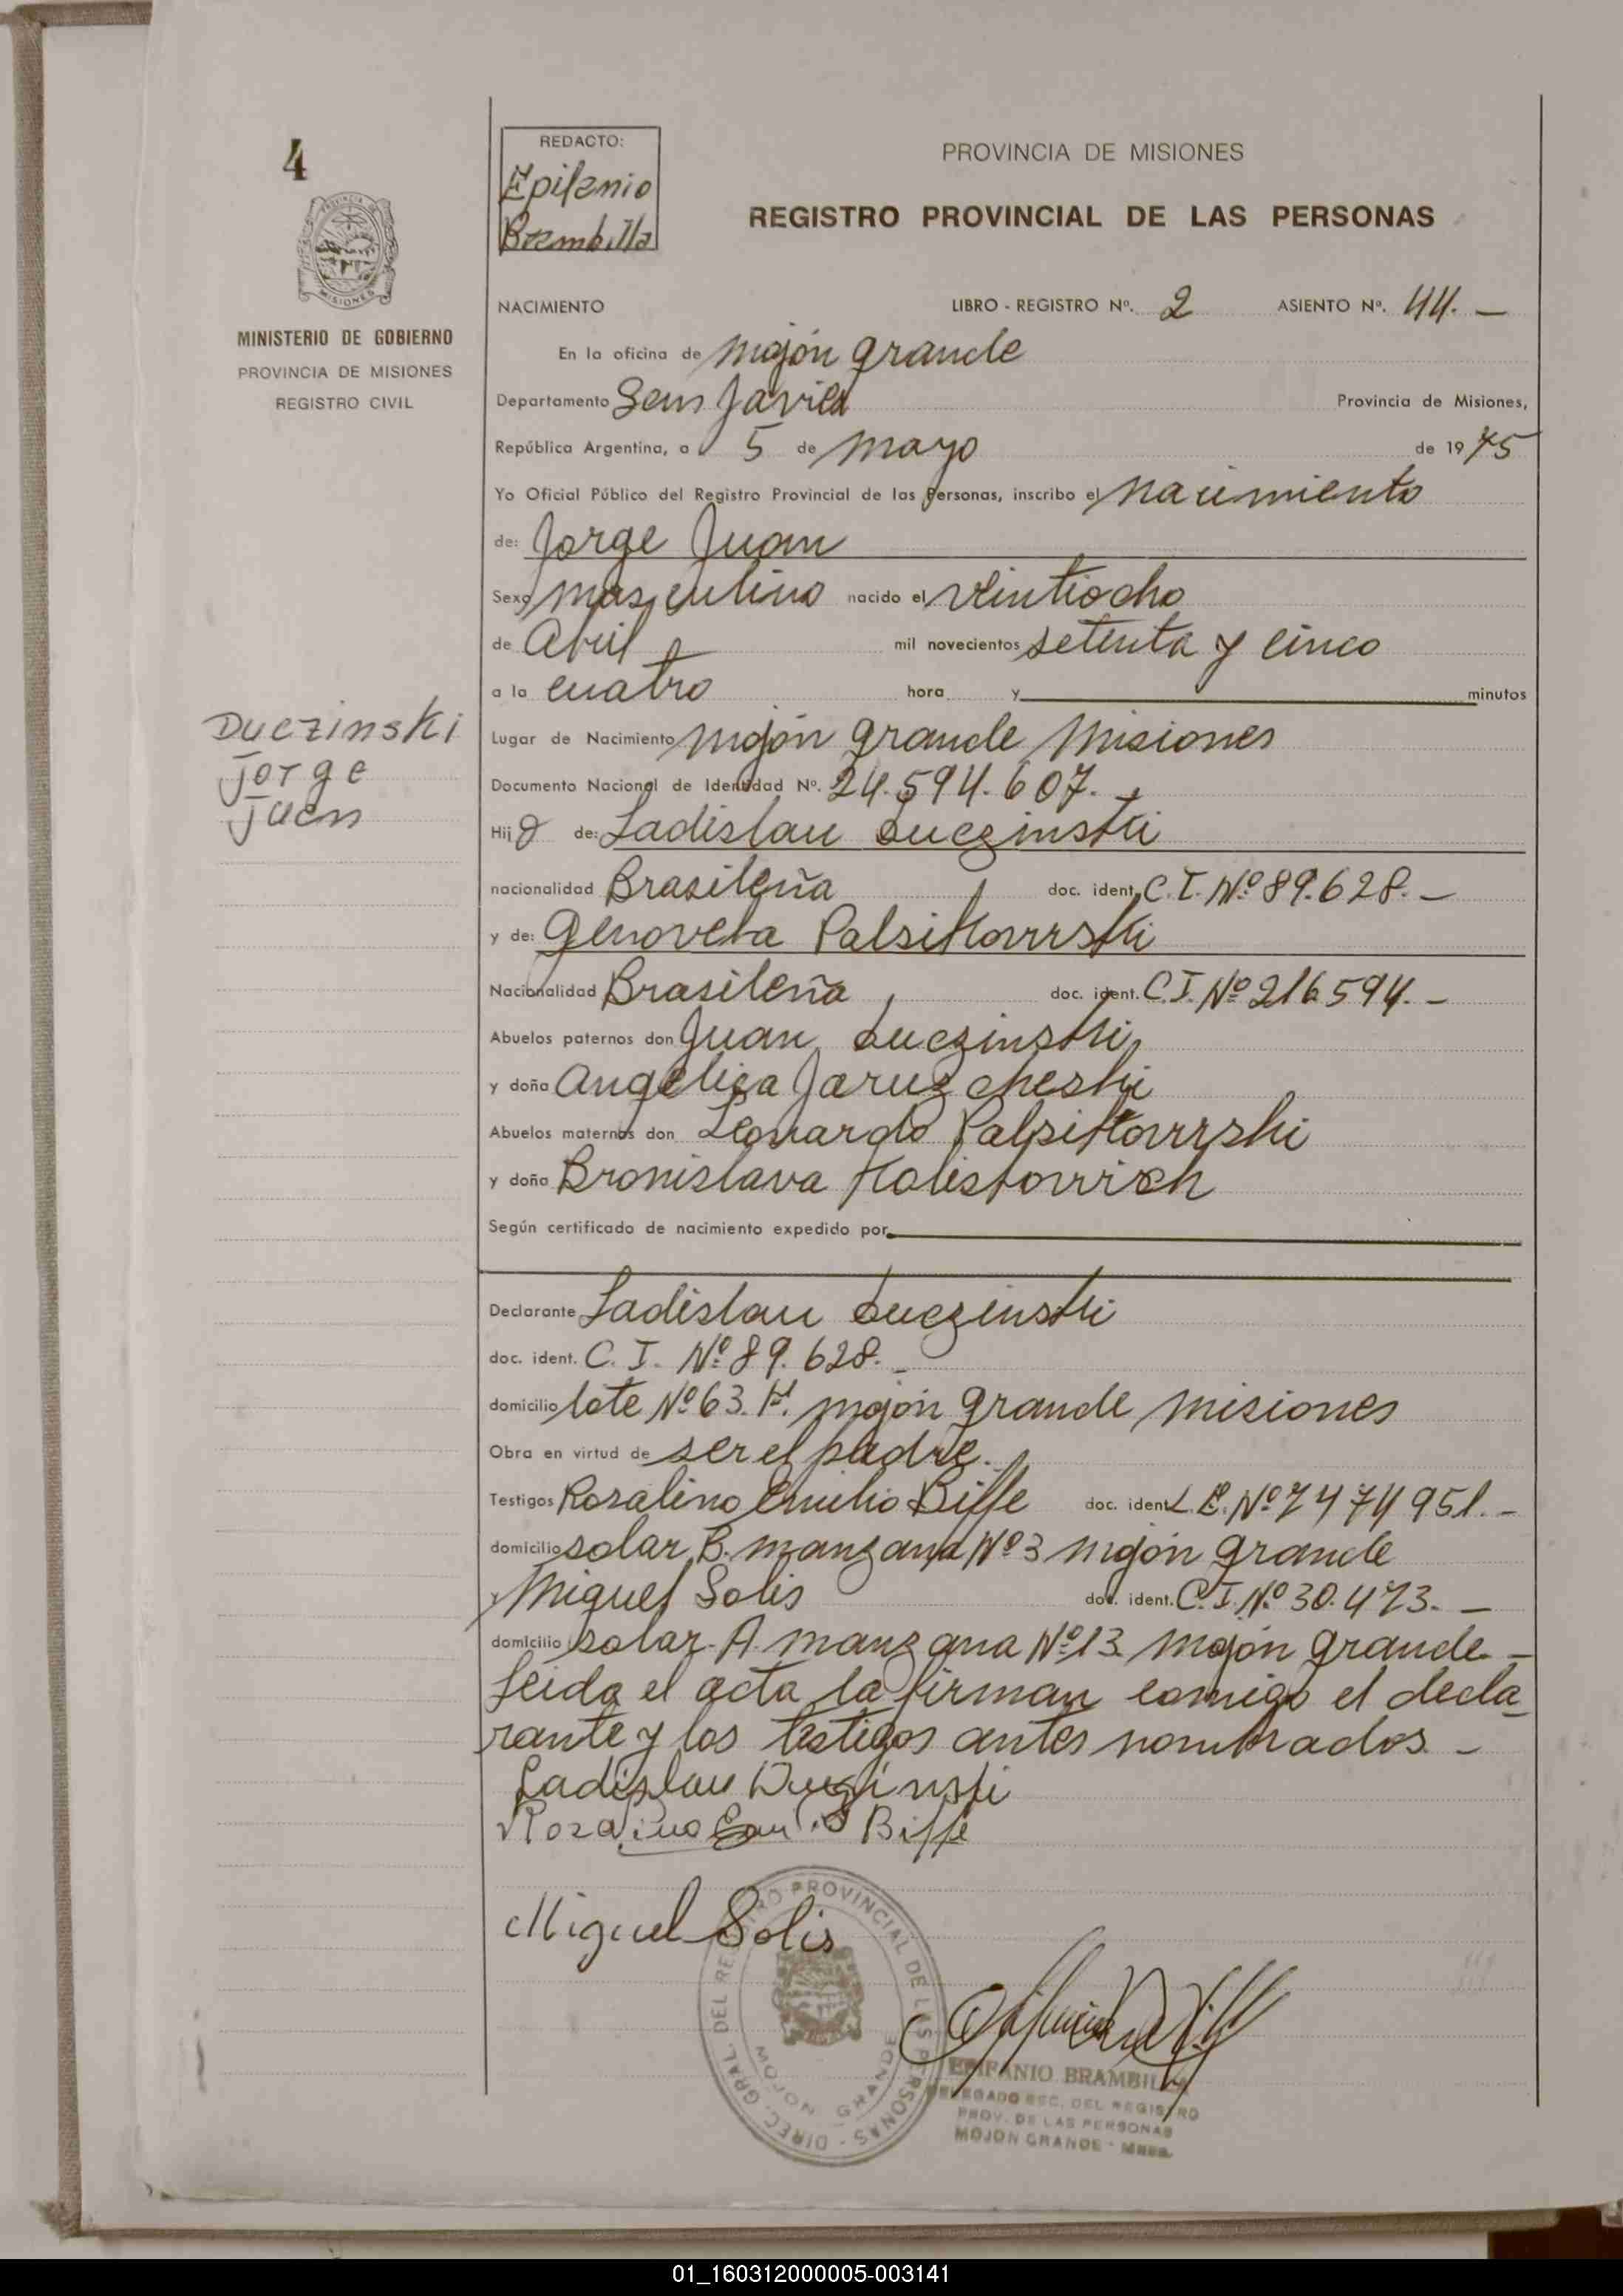 4
REDACTO:
Epifanio
Brambilla
PROVINCIA DE MISIONES
REGISTRO PROVINCIAL DE LAS PERSONAS
MINISTERIO DE GOBIERNO
PROVINCIA DE MISIONES
REGISTRO CIVIL
NACIMIENTO LIBRO - REGISTRO Nº. 2 ASIENTO Nº. 44. —
En la oficina de mojón grande
Departamento San Javier Provincia de Misiones,
República Argentina, a 5 de mayo de 1975
Yo Oficial Público del Registro Provincial de las Personas, inscribo el nacimiento
de: Jorge Juan
Sexo masculino nacido el veintiocho
de Abril mil novecientos setenta y cinco
a la cuatro hora y minutos
Duczinski
Jorge
Juan
Lugar de Nacimiento mojón grande Misiones
Documento Nacional de Identidad Nº. 24.594.607.
Hij o de: Ladislau Duczinski
nacionalidad Brasileña doc. ident. C.I. Nº 89.628. —
y de: Genoveva Palsikovvrski
Nacionalidad Brasileña, doc. ident. C.I. Nº 216594. —
Abuelos paternos don Juan Duczinski
y doña Angélica Jaruzcheski
Abuelos maternos don Leonardo
y doña Bronislava
Según certificado de nacimiento expedido por
Declarante Ladislau Duczinski
doc. ident. C. I. Nº 89.628. —
domicilio lote Nº 63. F. mojón grande misiones
Obra en virtud de ser el padre.
Testigos Rosalino Emilio Biffe doc. ident L.E. Nº 7474951. —
domicilio solar B. manzana Nº 3 mojón grande
y Miguel Solis doc. ident. C.I. Nº 30.473. —
domicilio solar A manzana Nº 13 mojón grande. —
Leida el acta la firman comigo el decla
rante y los testigos antes nombrados. —
Ladislau Duczinski
Rosalino Emilio Biffe
Miguel Solis
DIREC. GRAL. DEL REGISTRO PROVINCIAL DE LAS PERSONAS
MOJON GRANDE
EPIFANIO BRAMBILLA
DELEGADO ESC. DEL REGISTRO
PROV. DE LAS PERSONAS
MOJON GRANDE - Mnes.
01_160312000005-003141